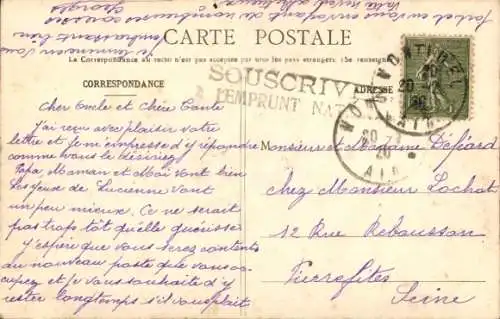 CARTE POSTALE
La Correspondance au recto n'est pas acceptée par tous les pays étrangers (Se renseigner
CORRESPONDANCE
ADRESSE
SOUSCRIVEZ
À L'EMPRUNT NAT
Cher Oncle et Chère Tante
J'ai reçu avec plaisir votre
lettre et je m'empresse d'y répondre
comme vous le désiriez
Papa Maman et Moi vont bien
Les yeux de Lucienne vont
un peu mieux. Ce ne serait
pas trop tôt qu'elle guérisse
J'espère que vous serez contents
du nouveau poste que vous oc-
cupez et je vous souhaite d'y
rester longtemps s'il vous plait
Je termine en vous
embrassant bien
Georges
Monsieur et Madame
Chez Monsieur Lochot
12 Rue
Pierrefites
Seine
MONTIRE
20
AIN
20
20
AIN